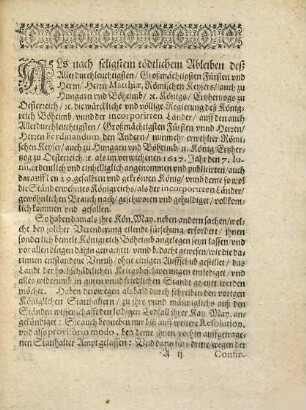 ALs nach seligstem tödtlichem Ableiben deß
Allerdurchleuchtigsten / Großmächtigsten Fürsten vnd
Herrn / Herrn Matthiæ, Römischen Keysers / auch zu
Hungarn vnd Böheimb / ꝛc. Königs / Ertzhertzog zu
Oesterreich / ꝛc. die würckliche vnd völlige Regierung deß König-
reich Böheimb / vnnd der incorporirten Länder / auff den auch
Allerdurchleuchtigsten / Großmächtigsten Fürsten vnnd Herren /
Herren Ferdinandum den Andern / nunmehr erwehlter Römi-
schen Keyser / auch zu Hungarn vnd Böheimb / ꝛc. König / Ertzher-
zog zu Oesterreich / ꝛc. als im verwichenen 1617. Jahr den 7. Iu-
nii, ordentlich vnd einhelliglich angenommen vnd publicirten / auch
darauff den 29. gesalbten vnd gekrönten König / vnd deme so wol
die Ständ ernenntes Königreichs / als der incorporirten Länder /
gewöhnlichen Brauch nach / geschworen vnd gehuldiget / vollkom-
lich kommen vnd gefallen.
So haben damals jhre Kön. May. neben andern sachen / welche
bey solcher Veränderung eilende fürsehung erfordert / jhnen
sonderlich beede Königreich Böheimb angelegen seyn lassen vnd
vor allen dingen dahin getrachtet / vnnd bedacht gewest / wie die dar-
innen entstandene Vnruh / ohne einigen Auffschub gestillet / das
Landt der hochschädlichen Kriegsbeschwerungen entlediget / vnd
alles widerumb in guten vnnd friedlichen Standt gesetzt werden
möchte. Haben derowegen als bald durch schreiben den vorigen
Königlichen Statthaltern / zu jhrer vnnd männiglichs auß den
Ständen wissenschafft den leydigen Todtfall jhrer Kay. May. an-
gekündiget: Sie auch benebens nur biß auff weitere Resolution,
vnd als provisorio modo, bey deme jhnen vorhin auffgetrage-
nen Statthalter Ampt gelassen: Vnd dann fürs dritte wegen der
A ij Confir-